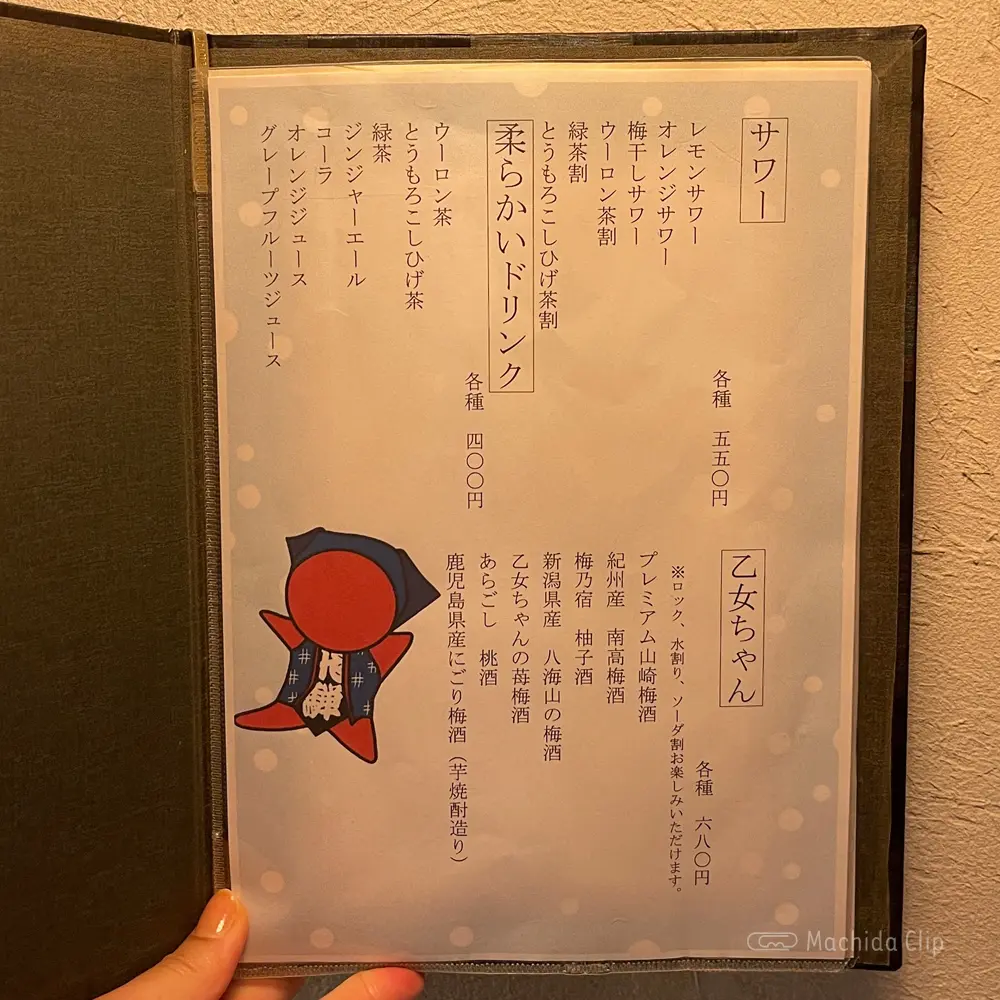 サワー
各種　五五〇円
レモンサワー
オレンジサワー
梅干しサワー
ウーロン茶割
緑茶割
とうもろこしひげ茶割
柔らかいドリンク
各種　四〇〇円
ウーロン茶
とうもろこしひげ茶
緑茶
ジンジャーエール
コーラ
オレンジジュース
グレープフルーツジュース
乙女ちゃん
各種　六八〇円
※ロック、水割り、ソーダ割お楽しみいただけます。
プレミアム山崎梅酒
紀州産　南高梅酒
梅乃宿　柚子酒
新潟県産　八海山の梅酒
乙女ちゃんの苺梅酒
あらごし　桃酒
鹿児島県産にごり梅酒（芋焼酎造り）
Machida Clip